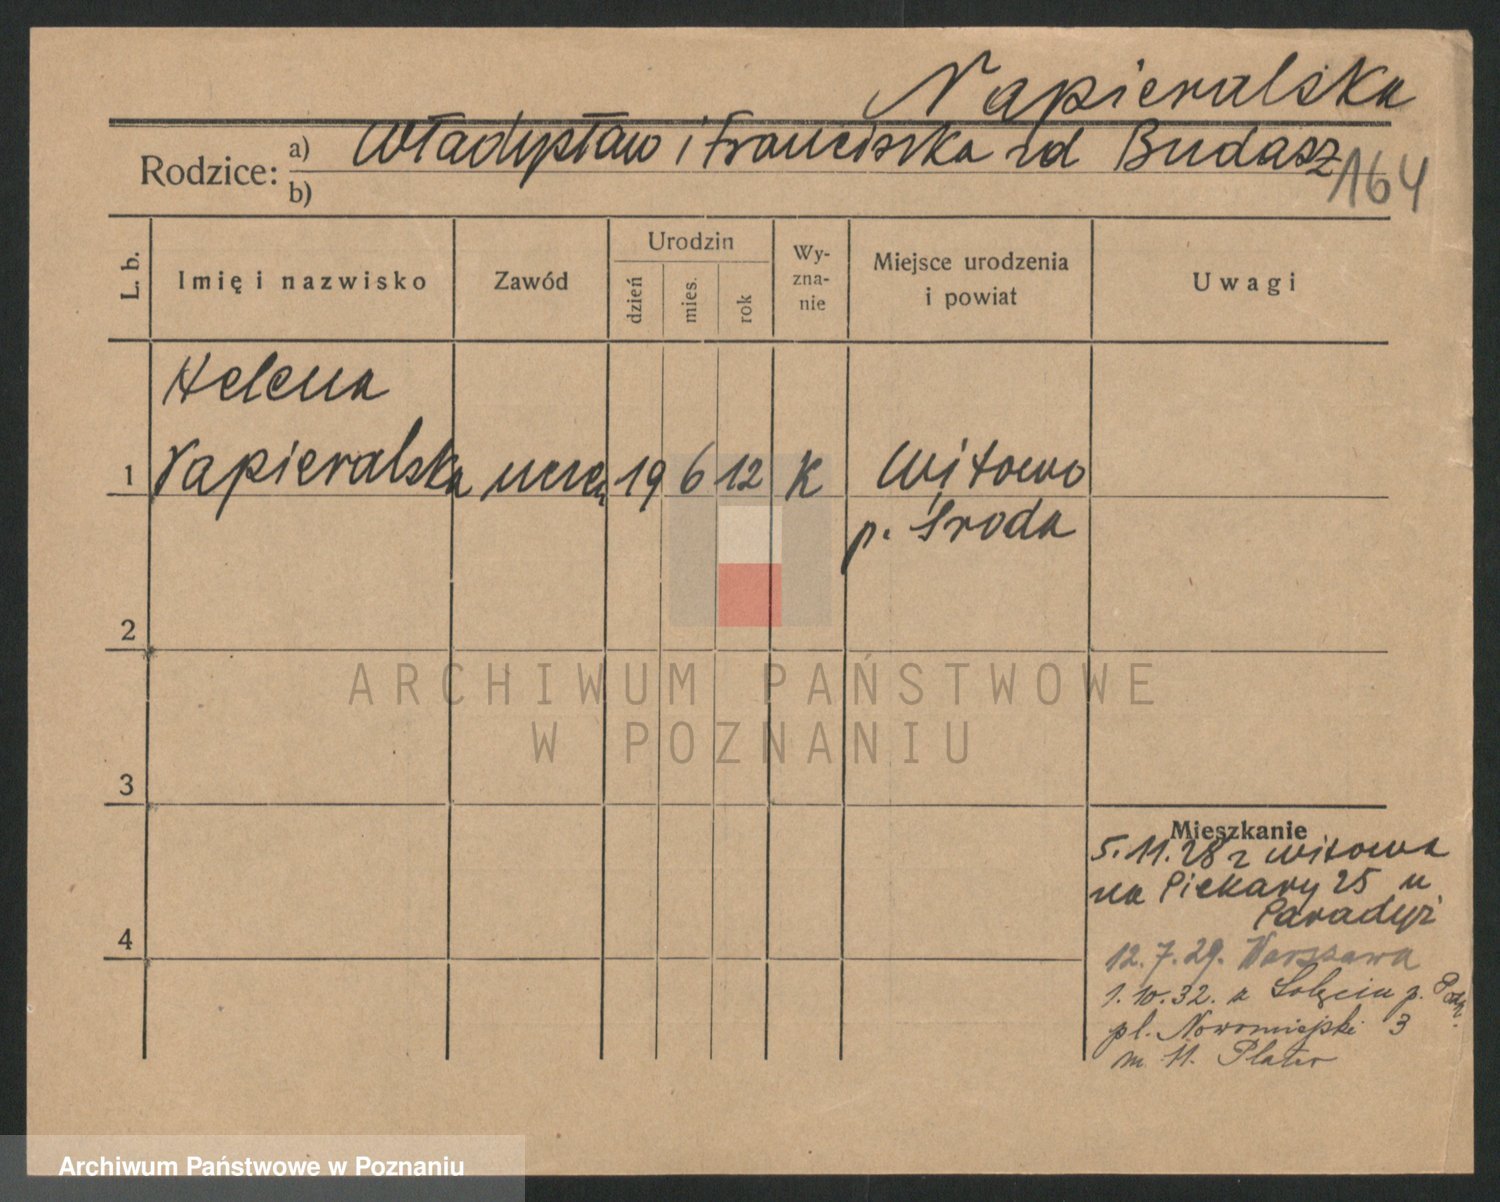 Napieralska
Rodzice: a) Władysław i Franciszka zd Budasz
b)
164
L. b.
Imię i nazwisko
Zawód
Urodzin
dzień
mies.
rok
Wy-
zna-
nie
Miejsce urodzenia
i powiat
Uwagi
Helena
1 Napieralska uczą 19 6 12 K Witowo
p. Środa
2
3
4
Mieszkanie
5.11.28 z Witowa
na Piekary 25 u
Paradyż
12.7.29. Warszawa
1.10.32. z p.
pl. Nowomiejski 3
m. 11. Plater
ARCHIWUM PAŃSTWOWE
W POZNANIU
Archiwum Państwowe w Poznaniu